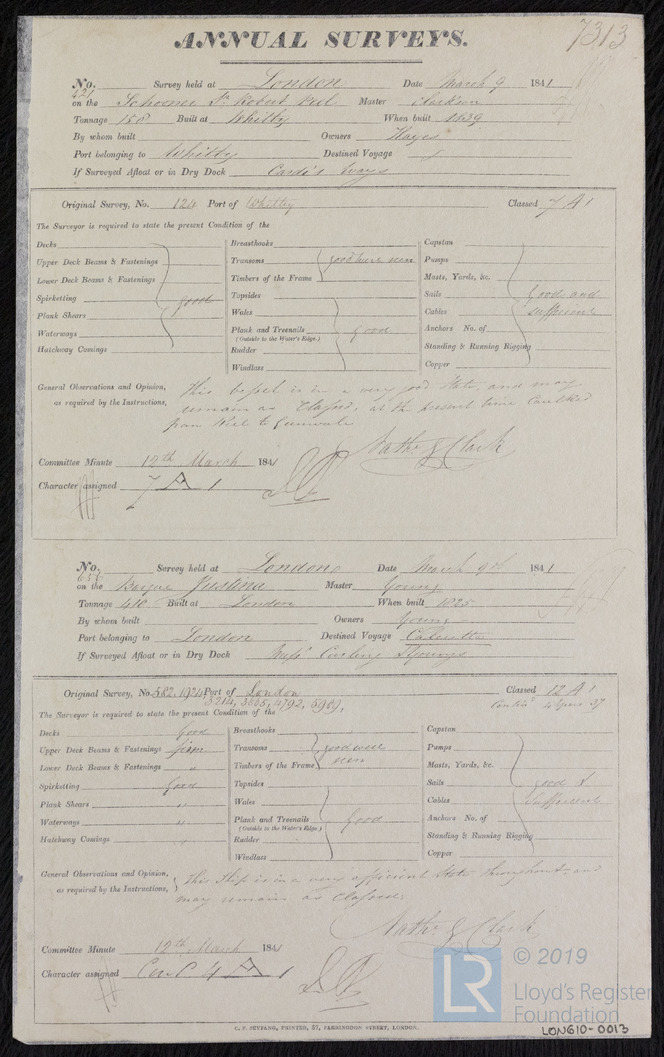 7313
ANNUAL SURVEYS.
No. 421 Survey held at London Date March 9 1841
on the Schooner Sr Robert Peel Master Clarkson
Tonnage 150 Built at Whitby When built 1839
By whom built Owners Hayes
Port belonging to Whitby Destined Voyage
If Surveyed Afloat or in Dry Dock
Original Survey, No. 124 Port of Whitby Classed 7 A 1
The Surveyor is required to state the present Condition of the
Decks Breasthooks Capstan
Upper Deck Beams & Fastenings Transoms good where seen Pumps
Lower Deck Beams & Fastenings Timbers of the Frame Masts, Yards, &c.
Spirketting good Topsides Sails good and
Plank Shears Wales Cables sufficient
Waterways Plank and Treenails good Anchors No. of
(Outside to the Water's Edge.)
Hatchway Comings Rudder Standing & Running Rigging
Windlass Copper
General Observations and Opinion, This Vessel is in a very good State, and may
as required by the Instructions, remain as Classed, at the present time Caulked
from Keel to Gunwale
Nathl G Clark
Committee Minute 12th March 1841
Character assigned 7 A 1
No. 656 Survey held at London Date March 9th 1841
on the Barque Justina Master Young
Tonnage 410 Built at London When built 1825
By whom built Owners Young
Port belonging to London Destined Voyage Calcutta
If Surveyed Afloat or in Dry Dock Messrs Curling & Youngs
Original Survey, No. 582, 1924 Port of London Classed 12 A 1
3214, 3665, 4792, 5989, Contd 4 years 37
The Surveyor is required to state the present Condition of the
Decks Good Breasthooks Capstan
Upper Deck Beams & Fastenings firm Transoms good where Pumps
Lower Deck Beams & Fastenings Timbers of the Frame seen Masts, Yards, &c.
Spirketting Good Topsides Sails good &
Plank Shears " Wales Cables sufficient
Waterways " Plank and Treenails Good Anchors No. of
(Outside to the Water's Edge.)
Hatchway Comings " Rudder Standing & Running Rigging
Windlass Copper
General Observations and Opinion, This Ship is in a very efficient State throughout and
as required by the Instructions, may remain as Classed.
Nathl G Clark
Committee Minute 12th March 1841
Character assigned Cont 4 A 1
LR © 2019
Lloyd's Register
Foundation
LON610-0013
C. F. SEYFANG, PRINTED, 57, FARRINGDON STREET, LONDON.